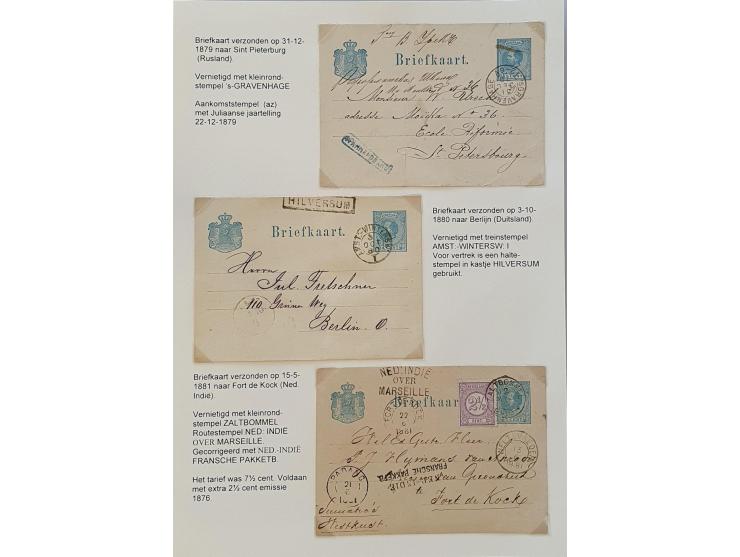 Briefkaart verzonden op 31-12-
1879 naar Sint Pieterburg
(Rusland).
Vernietigd met kleinrond-
stempel 's-GRAVENHAGE
Aankomststempel (az)
met Juliaanse jaartelling
22-12-1879
Briefkaart.
Monsieur
adresse Moika N° 36
Ecole Réformée
St Petersbourg
HILVERSUM
Briefkaart.
AMST.-WINTERSW.
I
Herrn
Jul. Fretschner
110. Grüner Weg
Berlin O.
Briefkaart verzonden op 3-10-
1880 naar Berlijn (Duitsland).
Vernietigd met treinstempel
AMST.-WINTERSW: I
Voor vertrek is een halte-
stempel in kastje HILVERSUM
gebruikt.
Briefkaart verzonden op 15-5-
1881 naar Fort de Kock (Ned.
Indie).
Vernietigd met kleinrond-
stempel ZALTBOMMEL
Routestempel NED: INDIE
OVER MARSEILLE.
Gecorrigeerd met NED.-INDIË
FRANSCHE PAKKETB.
Het tarief was 7½ cent. Voldaan
met extra 2½ cent emissie
1876.
NED: INDIE
OVER
MARSEILLE
Briefkaart
22
1881
2½
CENT
FRANSCHE PAKKETB.
Fort de Kock
PADANG
21
1881
Sumatra's
Westkust